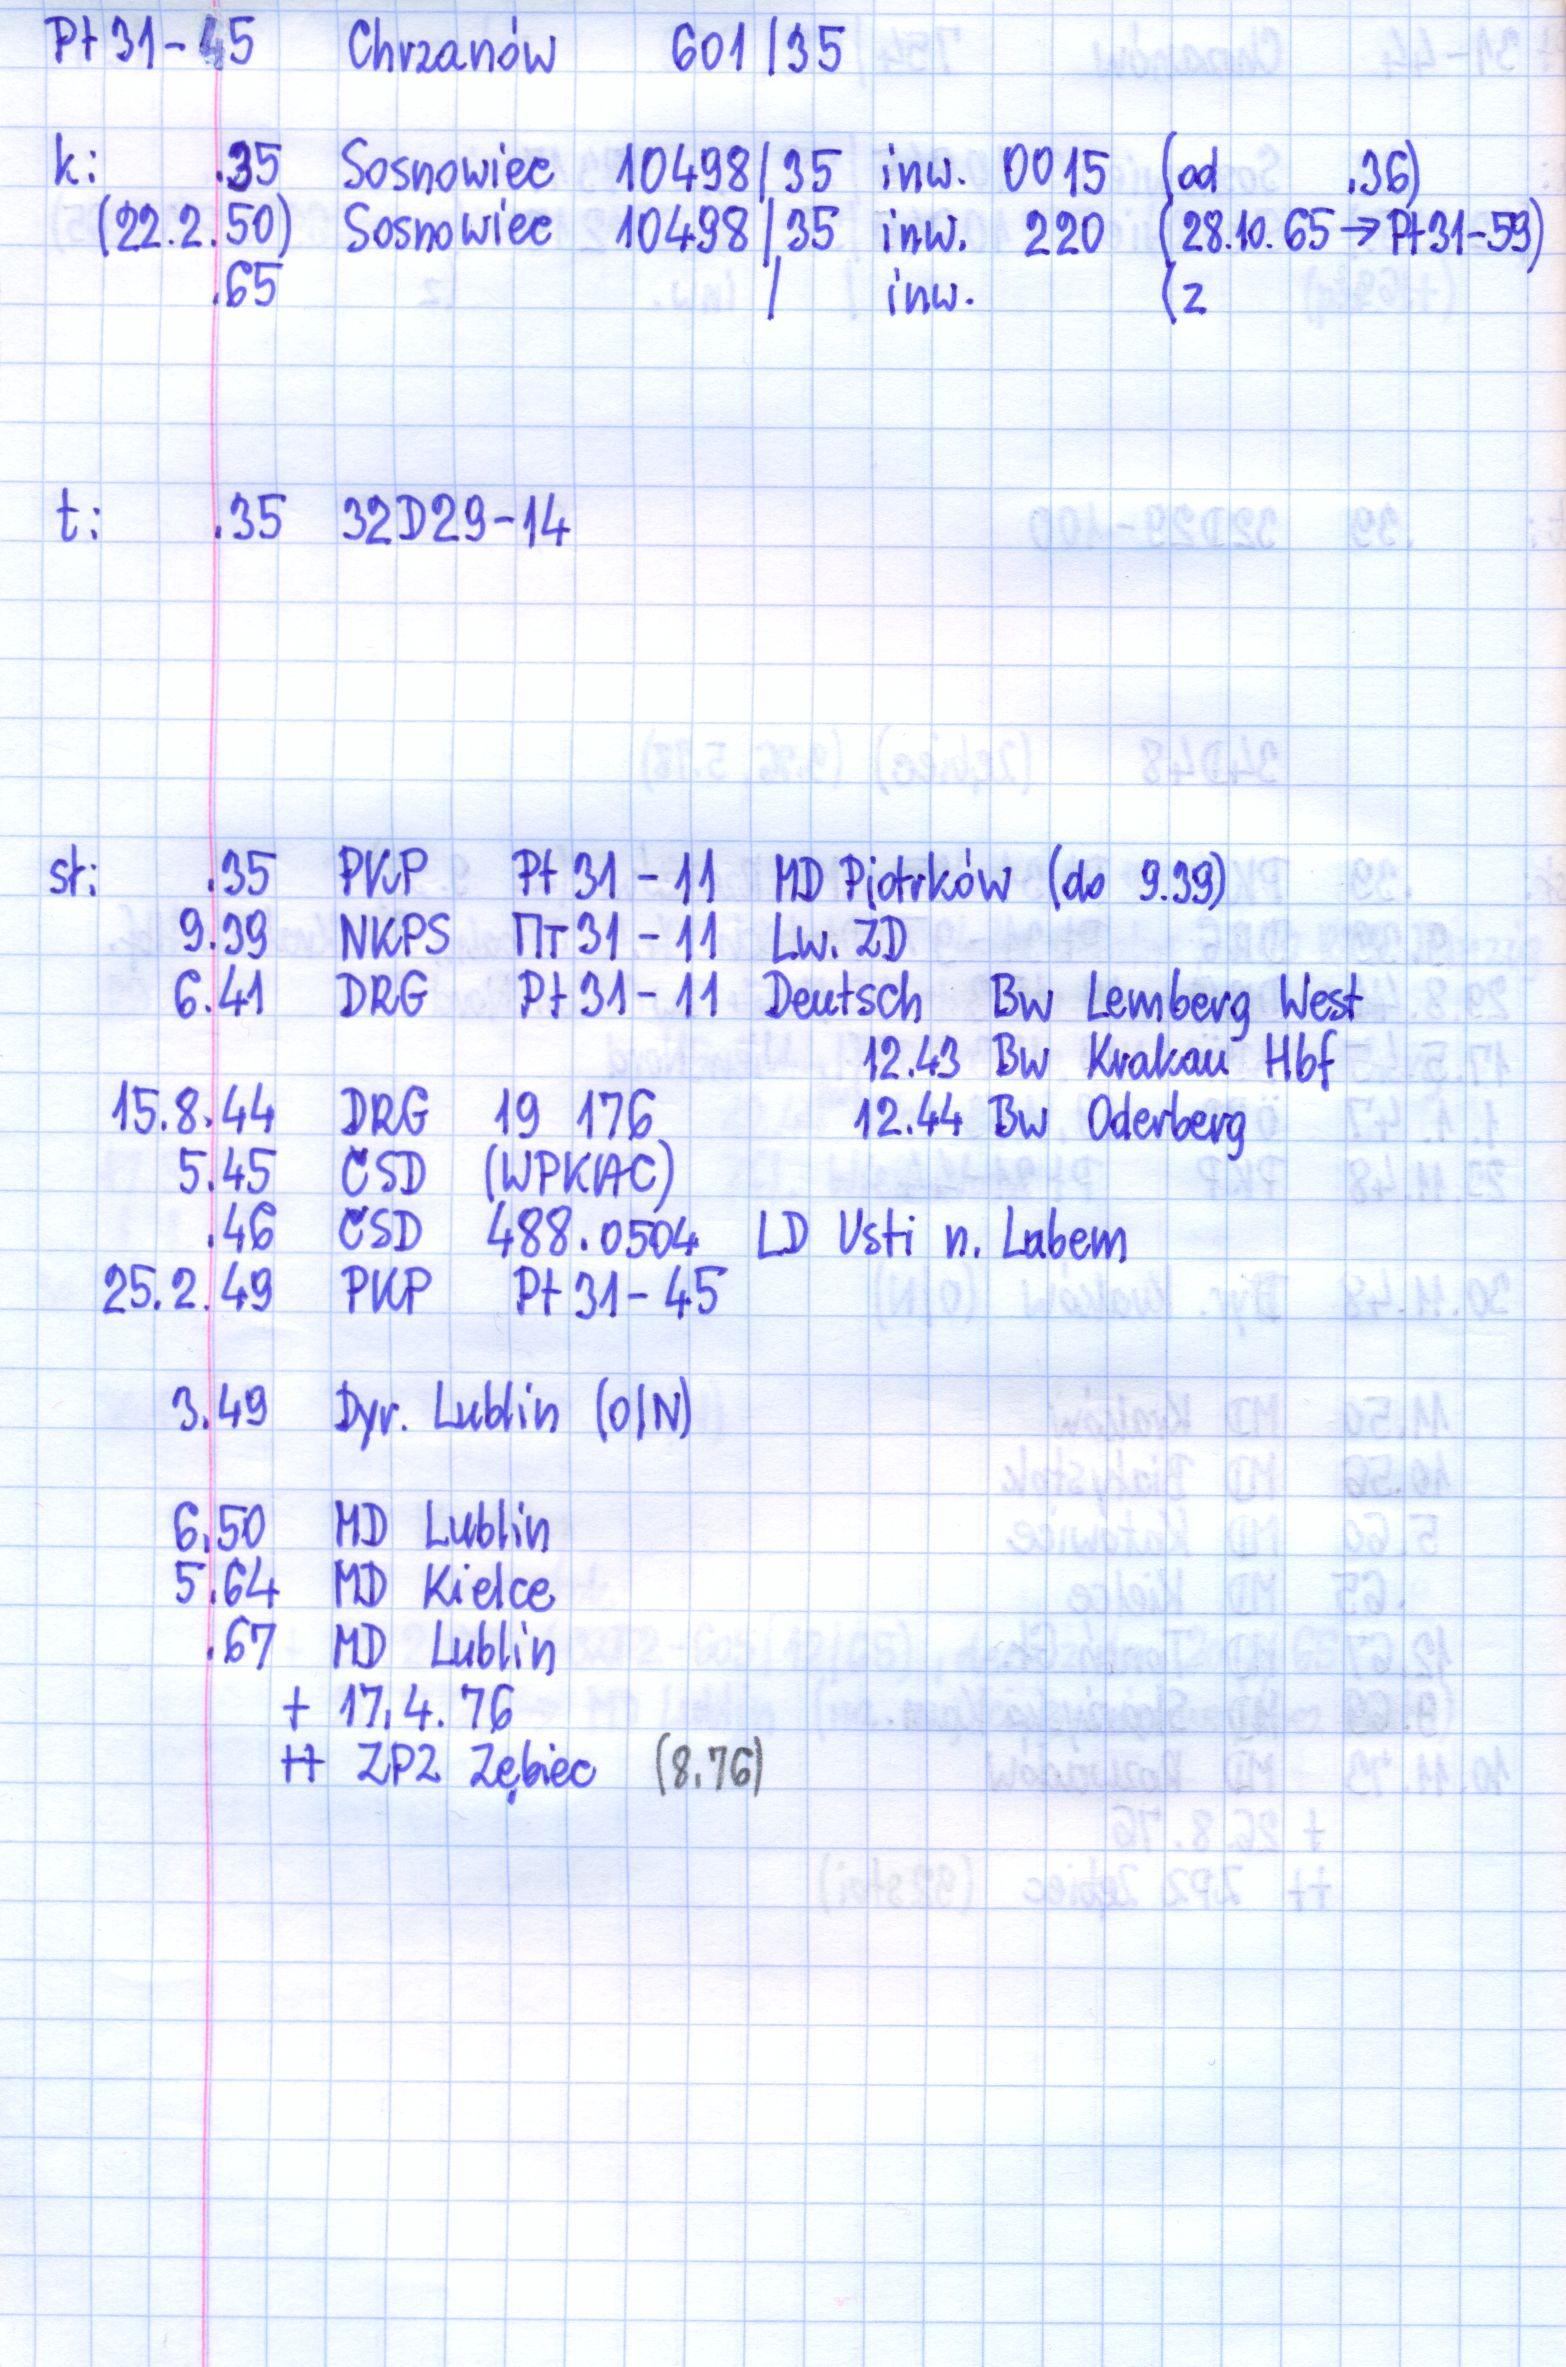 Pt 31-45 Chrzanów 601/35
k: .35 Sosnowiec 10498/35 inw. 0015 (od .36)
(22.2.50) Sosnowiec 10498/35 inw. 220 (28.10.65 → Pt31-59)
.65 / inw. (z
t: .35 32D29-14
st: .35 PKP Pt 31-11 MD Piotrków (do 9.39)
9.39 NKPS Пт 31-11 Lw. ŻD
6.41 DRG Pt 31-11 Deutsch Bw Lemberg West
12.43 Bw Krakau Hbf
15.8.44 DRG 19 176 12.44 Bw Oderberg
5.45 ČSD (WPKIAC)
.46 ČSD 488.0504 LD Usti n. Labem
25.2.49 PKP Pt 31-45
3.49 Dyr. Lublin (O/N)
6.50 MD Lublin
5.64 MD Kielce
.67 MD Lublin
+ 17.4.76
++ ZPZ Zębiec (8.76)